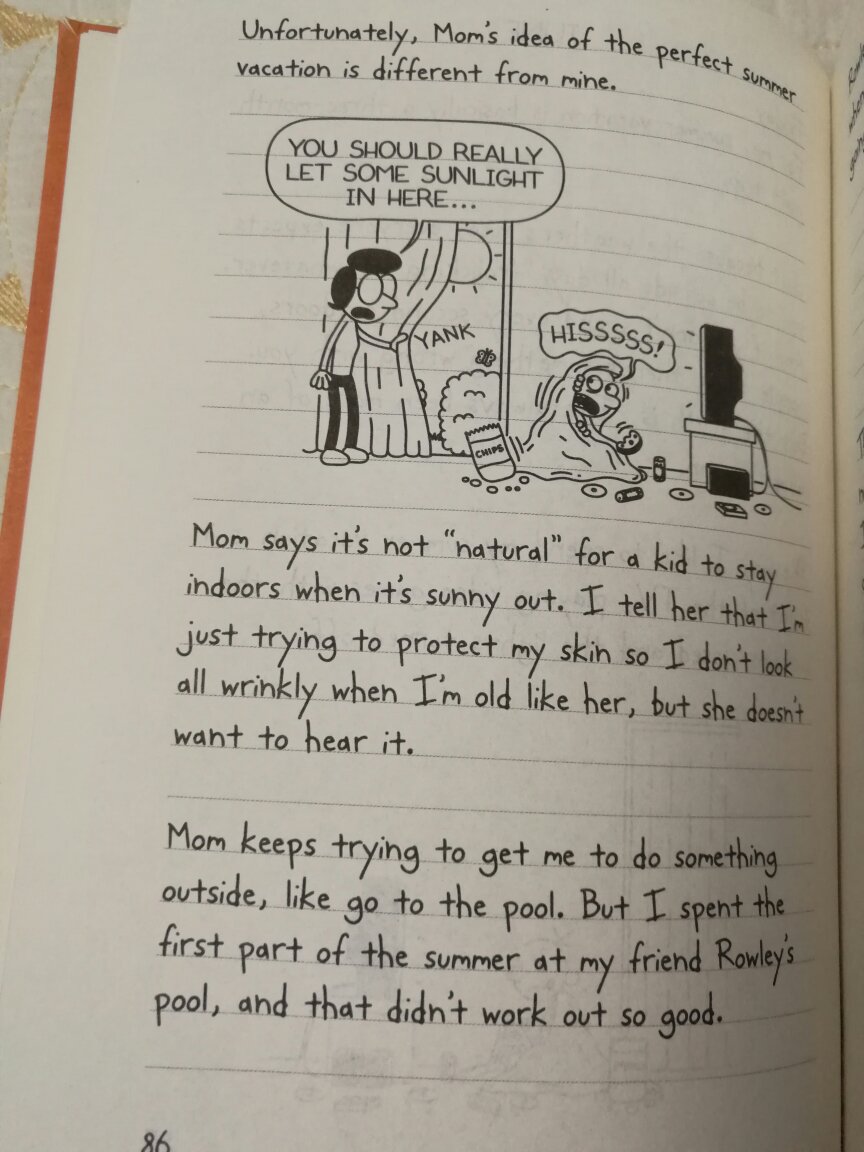 Unfortunately, Mom's idea of the perfect summer
vacation is different from mine.
YOU SHOULD REALLY
LET SOME SUNLIGHT
IN HERE...
YANK
HISSSSS!
CHIPS
Mom says it's not "natural" for a kid to stay
indoors when it's sunny out. I tell her that I'm
just trying to protect my skin so I don't look
all wrinkly when I'm old like her, but she doesn't
want to hear it.
Mom keeps trying to get me to do something
outside, like go to the pool. But I spent the
first part of the summer at my friend Rowley's
pool, and that didn't work out so good.
86